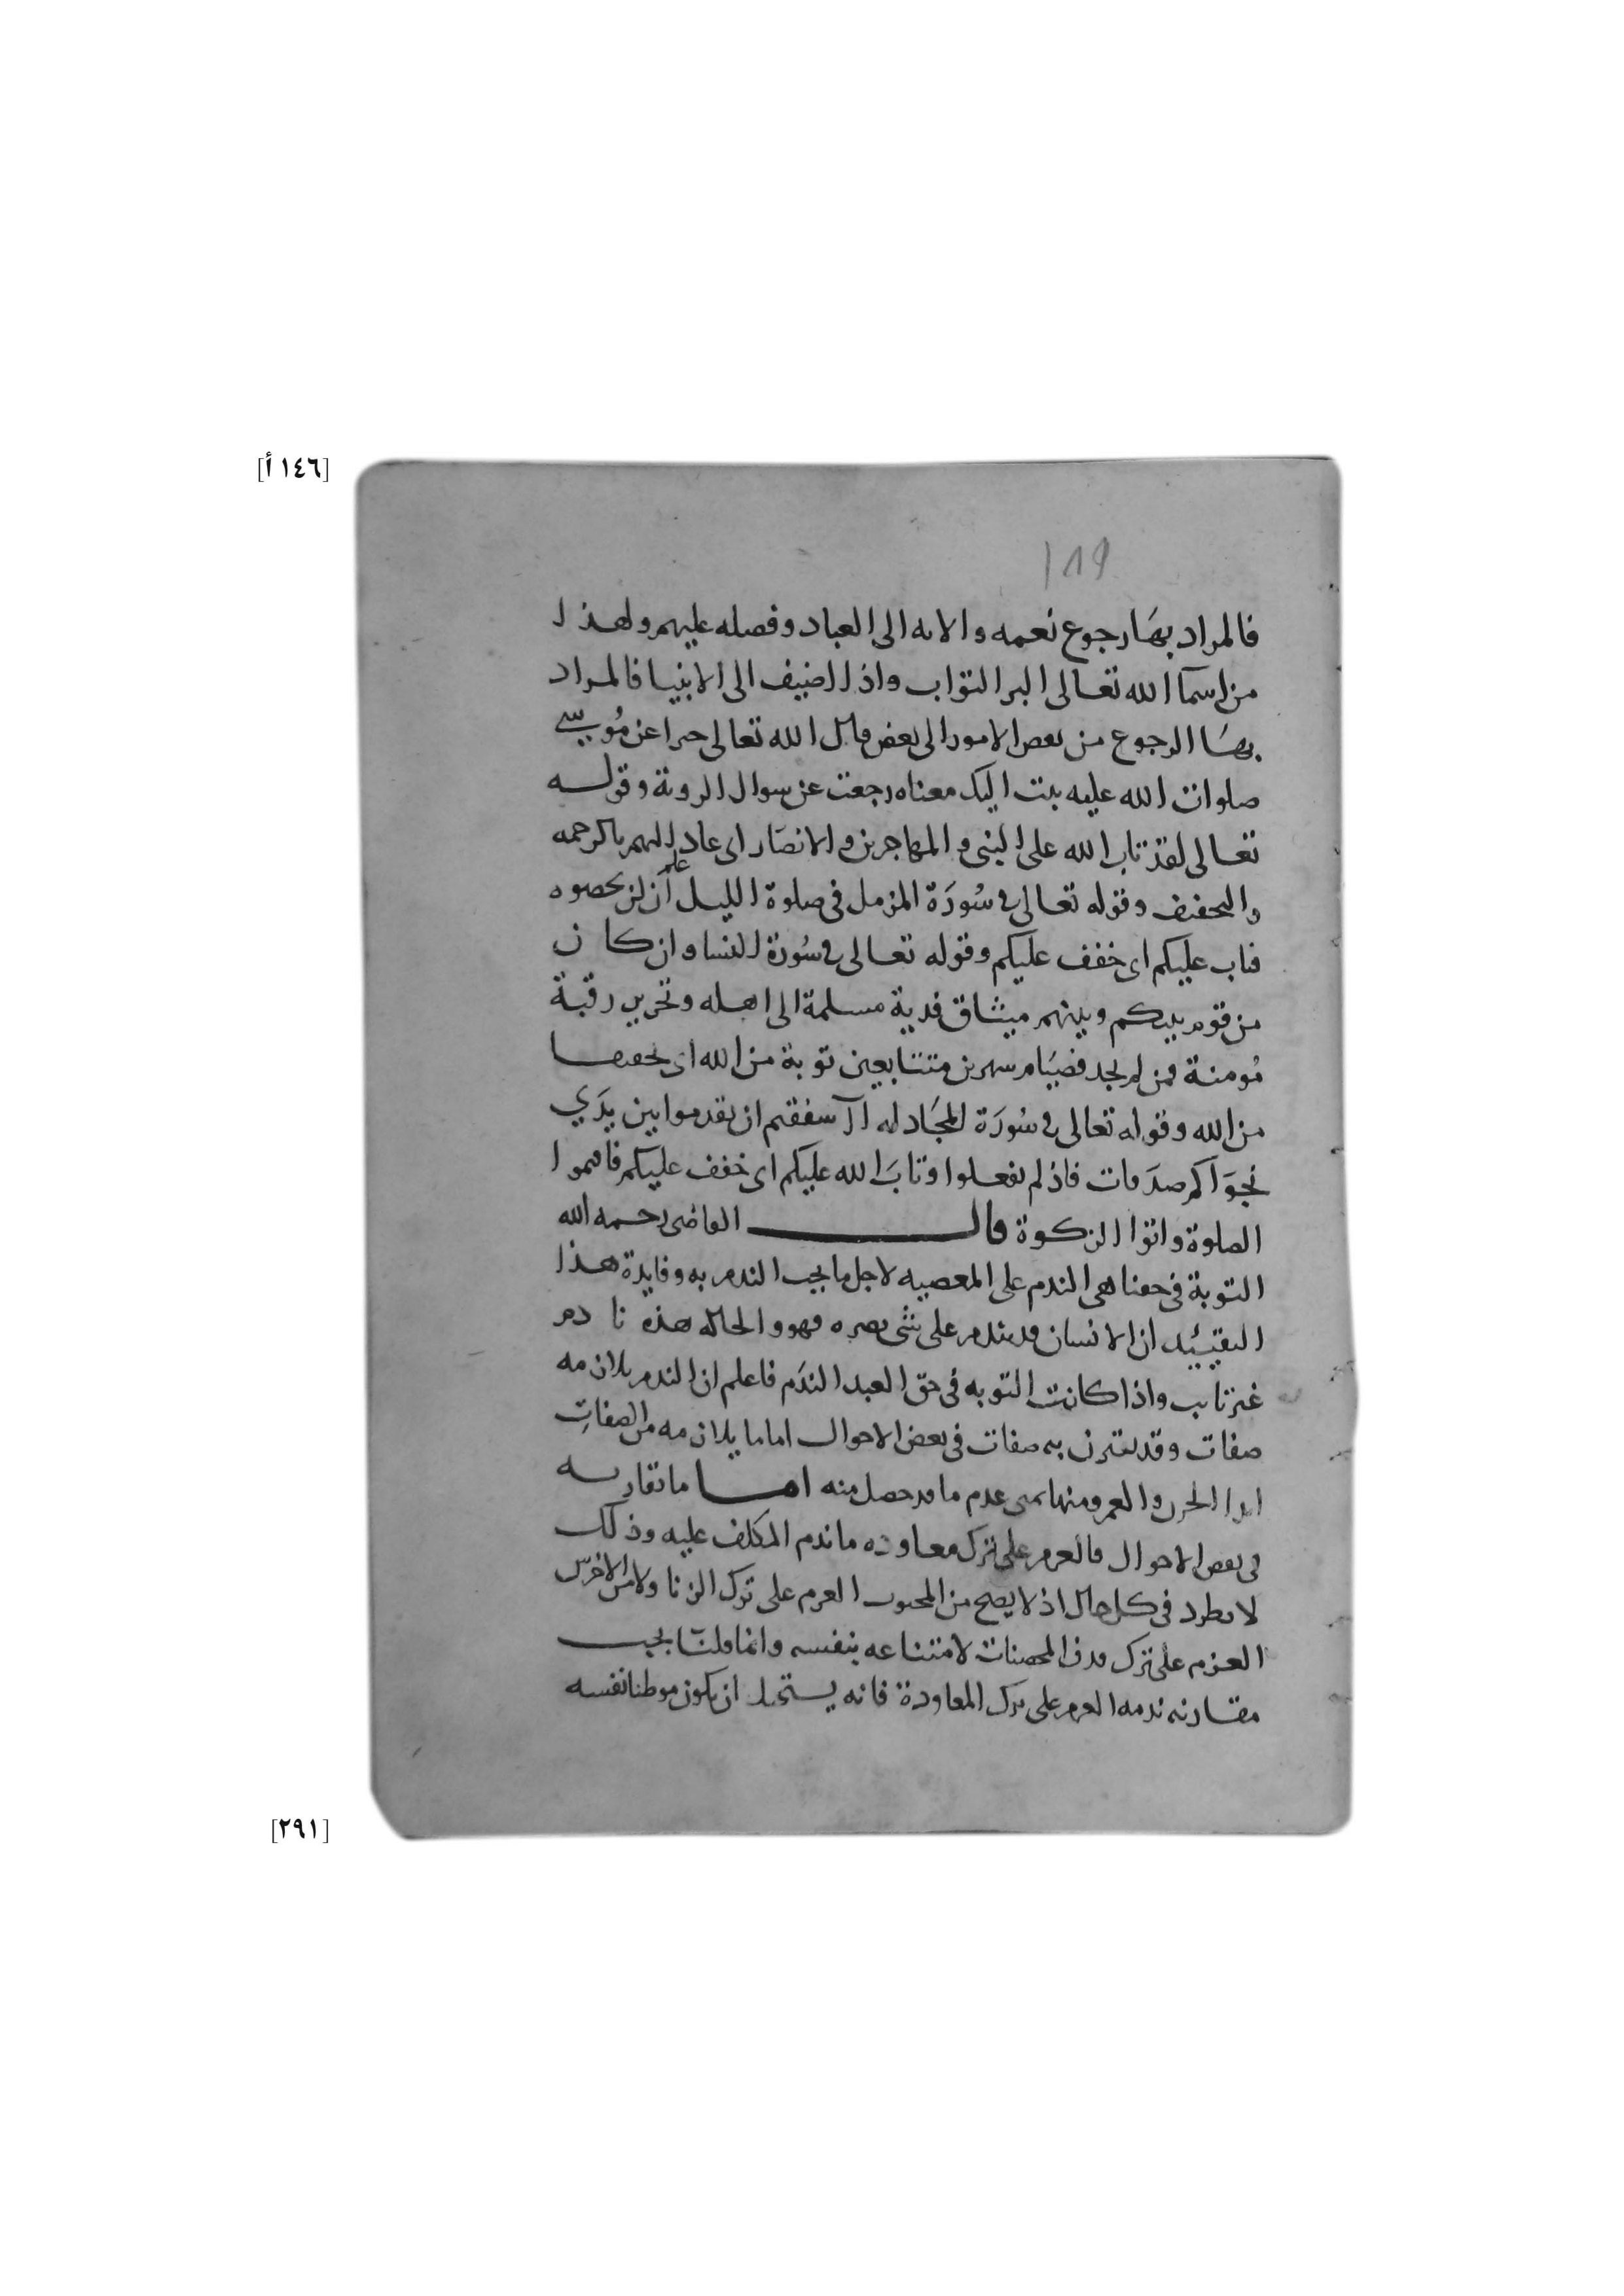 [١٤٦ أ]
١٨٩
فالمراد بها رجوع نعمه والائه الى العباد وفضله عليهم ولهذا
من اسما الله تعالى البر التواب واذا اضيف الى الانبيا فالمراد
بها الرجوع من بعض الامور الى بعض قال الله تعالى خبرا عن موسى
صلوات الله عليه تبت اليك معناه رجعت عن سوال الروية وقوله
تعالى لقد تاب الله على النبي والمهاجرين والانصار اى عاد اليهم بالرحمه
والتخفيف وقوله تعالى في سورة المزمل في صلوة الليل علم أن لن تحصوه
فتاب عليكم اى خفف عليكم وقوله تعالى في سورة النسا وان كان
من قوم بينكم وبينهم ميثاق فدية مسلمة الى اهله وتحرير رقبة
مومنة فمن لم يجد فصيام شهرين متتابعين توبة من الله اى تخفيفا
من الله وقوله تعالى في سورة المجادله أأشفقتم ان تقدموا بين يدي
نجواكم صدقات فاذ لم تفعلوا وتاب الله عليكم اى خفف عليكم فاقيموا
الصلوة واتوا الزكوة قال القاضى رحمه الله
التوبة في حقنا هى الندم على المعصيه لاجل ما يجب الندم به وفايدة هذا
التقييد ان الانسان قد يندم على شى يضره فهو والحاله هذه نادم
غير تايب واذا كانت التوبه في حق العبد الندم فاعلم ان الندم يلازمه
صفات وقد يقترن به صفات في بعض الاحوال اما ما يلازمه من الصفات
ابدا الحزن والغم ومنها تمنى عدم ما قد حصل منه اما ما تقارنه
في بعض الاحوال فالعزم على ترك معاودة ما ندم المكلف عليه وذلك
لا يطرد في كل حال اذ لا يصح من المجبوب العزم على ترك الزنا ولا من الاخرس
العزم على ترك قذف المحصنات لامتناعه بنفسه وانما قلنا يجب
مقارنة ندمه العزم على ترك المعاودة فانه يستحيل ان يكون موطنا نفسه
[٢٩١]